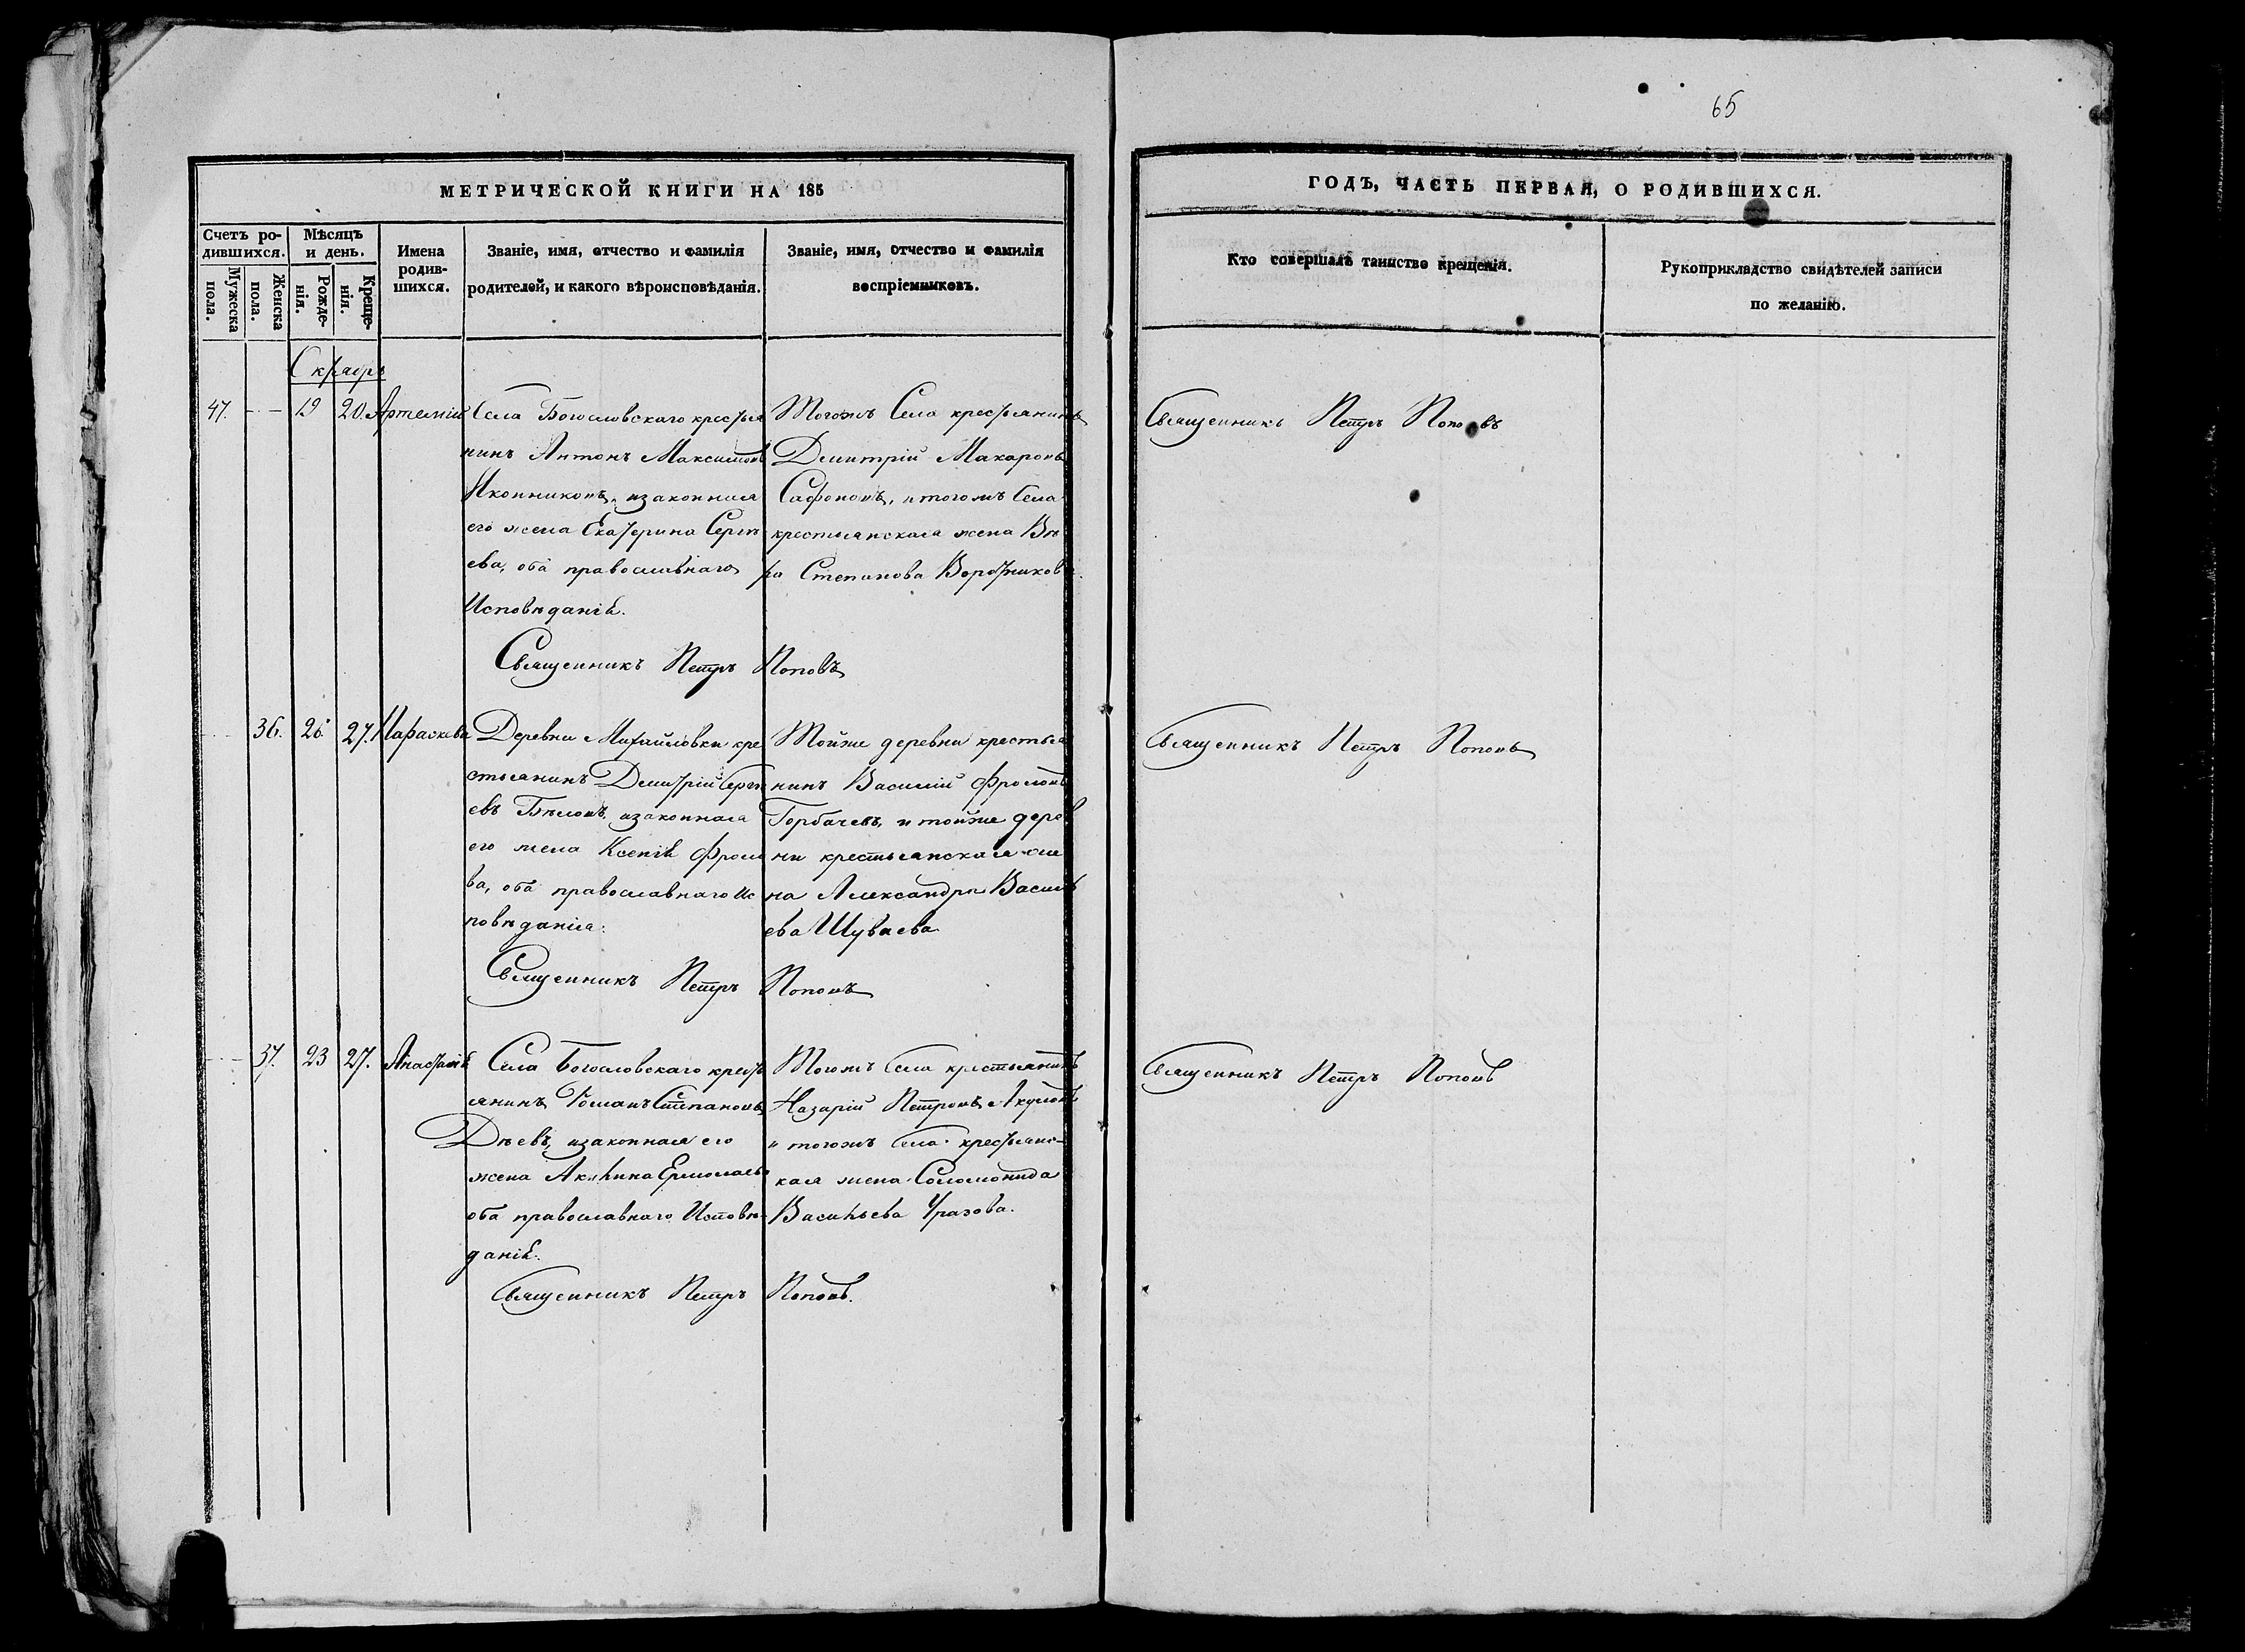 65
МЕТРИЧЕСКОЙ КНИГИ НА 185
ГОДЪ, ЧАСТЬ ПЕРВАЯ, О РОДИВШИХСЯ.
Счетъ ро-
дившихся.
Мужеска
пола.
Женска
пола.
Мѣсяцъ
и день.
Рожде-
нія.
Креще-
нія.
Имена
родив-
шихся.
Званіе, имя, отчество и фамилія
родителей, и какого вѣроисповѣданія.
Званіе, имя, отчество и фамилія
воспріемниковъ.
Кто совершалъ таинство крещенія.
Рукоприкладство свидѣтелей записи
по желанію.
47. 19 20. Артемій
Села Богословскаго крестья
нинъ Антонъ Максимовъ
Иконниковъ, изаконная
его жена Екатерина Сергѣ
ева, оба православнаго
Исповѣданія.
Тогожъ Села крестьянинъ
Дмитрій Макаровъ
Сафоновъ, и тогожъ Села
крестьянская жена Вѣ
ра Степанова Воротникова
Священникъ Петръ Поповъ
Священникъ Петръ Поповъ
36. 26 27. Параскева
Деревни Михайловки кре
стьянинъ Дмитрій Сергѣ
евъ Бѣловъ, изаконная
его жена Ксенія Фроло
ва, оба православнаго Ис
повѣданія.
Тойже деревни крестья
нинъ Василій Фроловъ
Горбачевъ, и тойже дерев
ни крестьянская же
на Александра Василь
ева Шуваева
Священникъ Петръ Поповъ
Священникъ Петръ Поповъ
37. 23 27. Анастасія
Села Богословскаго кресть
янинъ Романъ Степановъ
Дѣевъ, изаконная его
жена Акилина Ермолаева
оба православнаго Исповѣ-
данія.
Тогожъ Села крестьянинъ
Назарій Петровъ Акуловъ
и тогожъ Села крестьянс-
кая жена Соломонида
Васильева Уразова.
Священникъ Петръ Поповъ.
Священникъ Петръ Поповъ